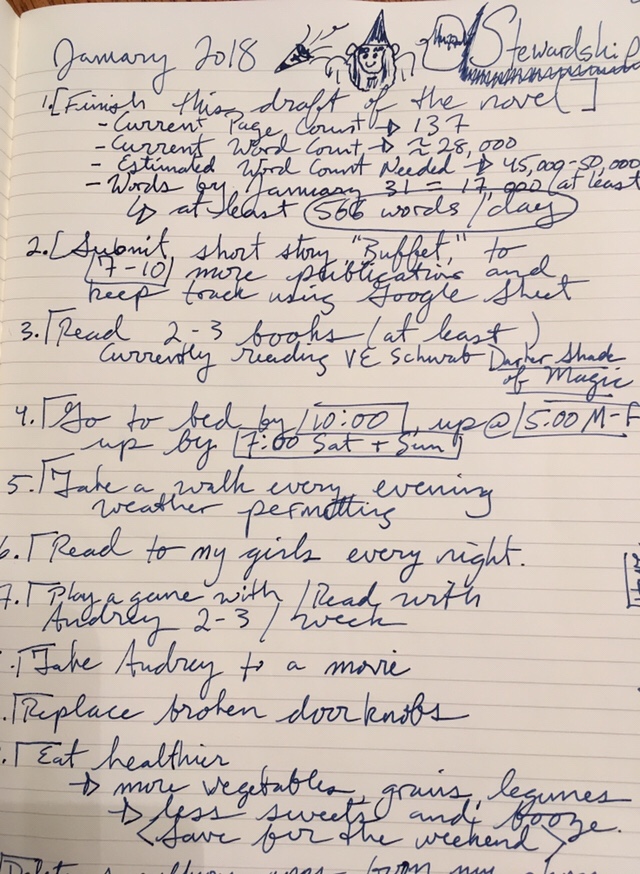 January 2018
Stewardship
1. [Finish this draft of the novel]
- Current Page Count → 137
- Current Word Count → ≈ 28,000
- Estimated Word Count Needed → 45,000-50,000
- Words by January 31 = 17,000 (at least
↳ at least 566 words / day
2. [Submit short story, "Buffet," to
7-10 more publications and
keep track using Google Sheet
3. Read 2-3 books (at least)
Currently reading VE Schwab Darker Shade
of Magic
4. Go to bed by 10:00, up @ 5:00 M-F
up by 7:00 Sat + Sun
5. Take a walk every evening
weather permitting
6. Read to my girls every night.
7. Play a game with / Read with
Audrey 2-3 / week
. Take Audrey to a movie
. Replace broken doorknobs
. Eat healthier
→ more vegetables, grains, legumes
→ less sweets and booze.
<Save for the weekend>
from my